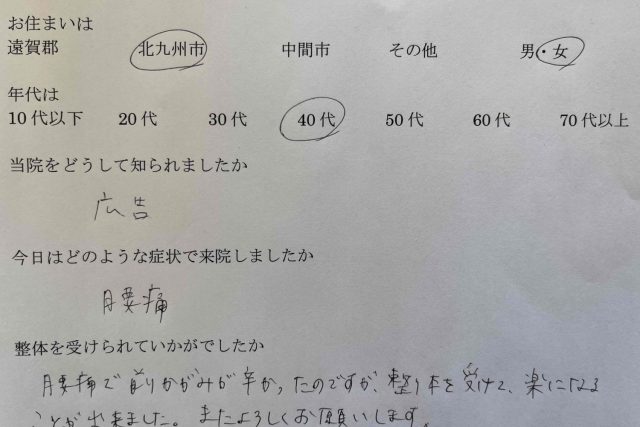 お住まいは
遠賀郡 北九州市 中間市 その他 男・女
年代は
10代以下 20代 30代 40代 50代 60代 70代以上
当院をどうして知られましたか
広告
今日はどのような症状で来院しましたか
腰痛
整体を受けられていかがでしたか
腰痛で前かがみが辛かったのですが、整体を受けて、楽になる
ことが出来ました。またよろしくお願いします。